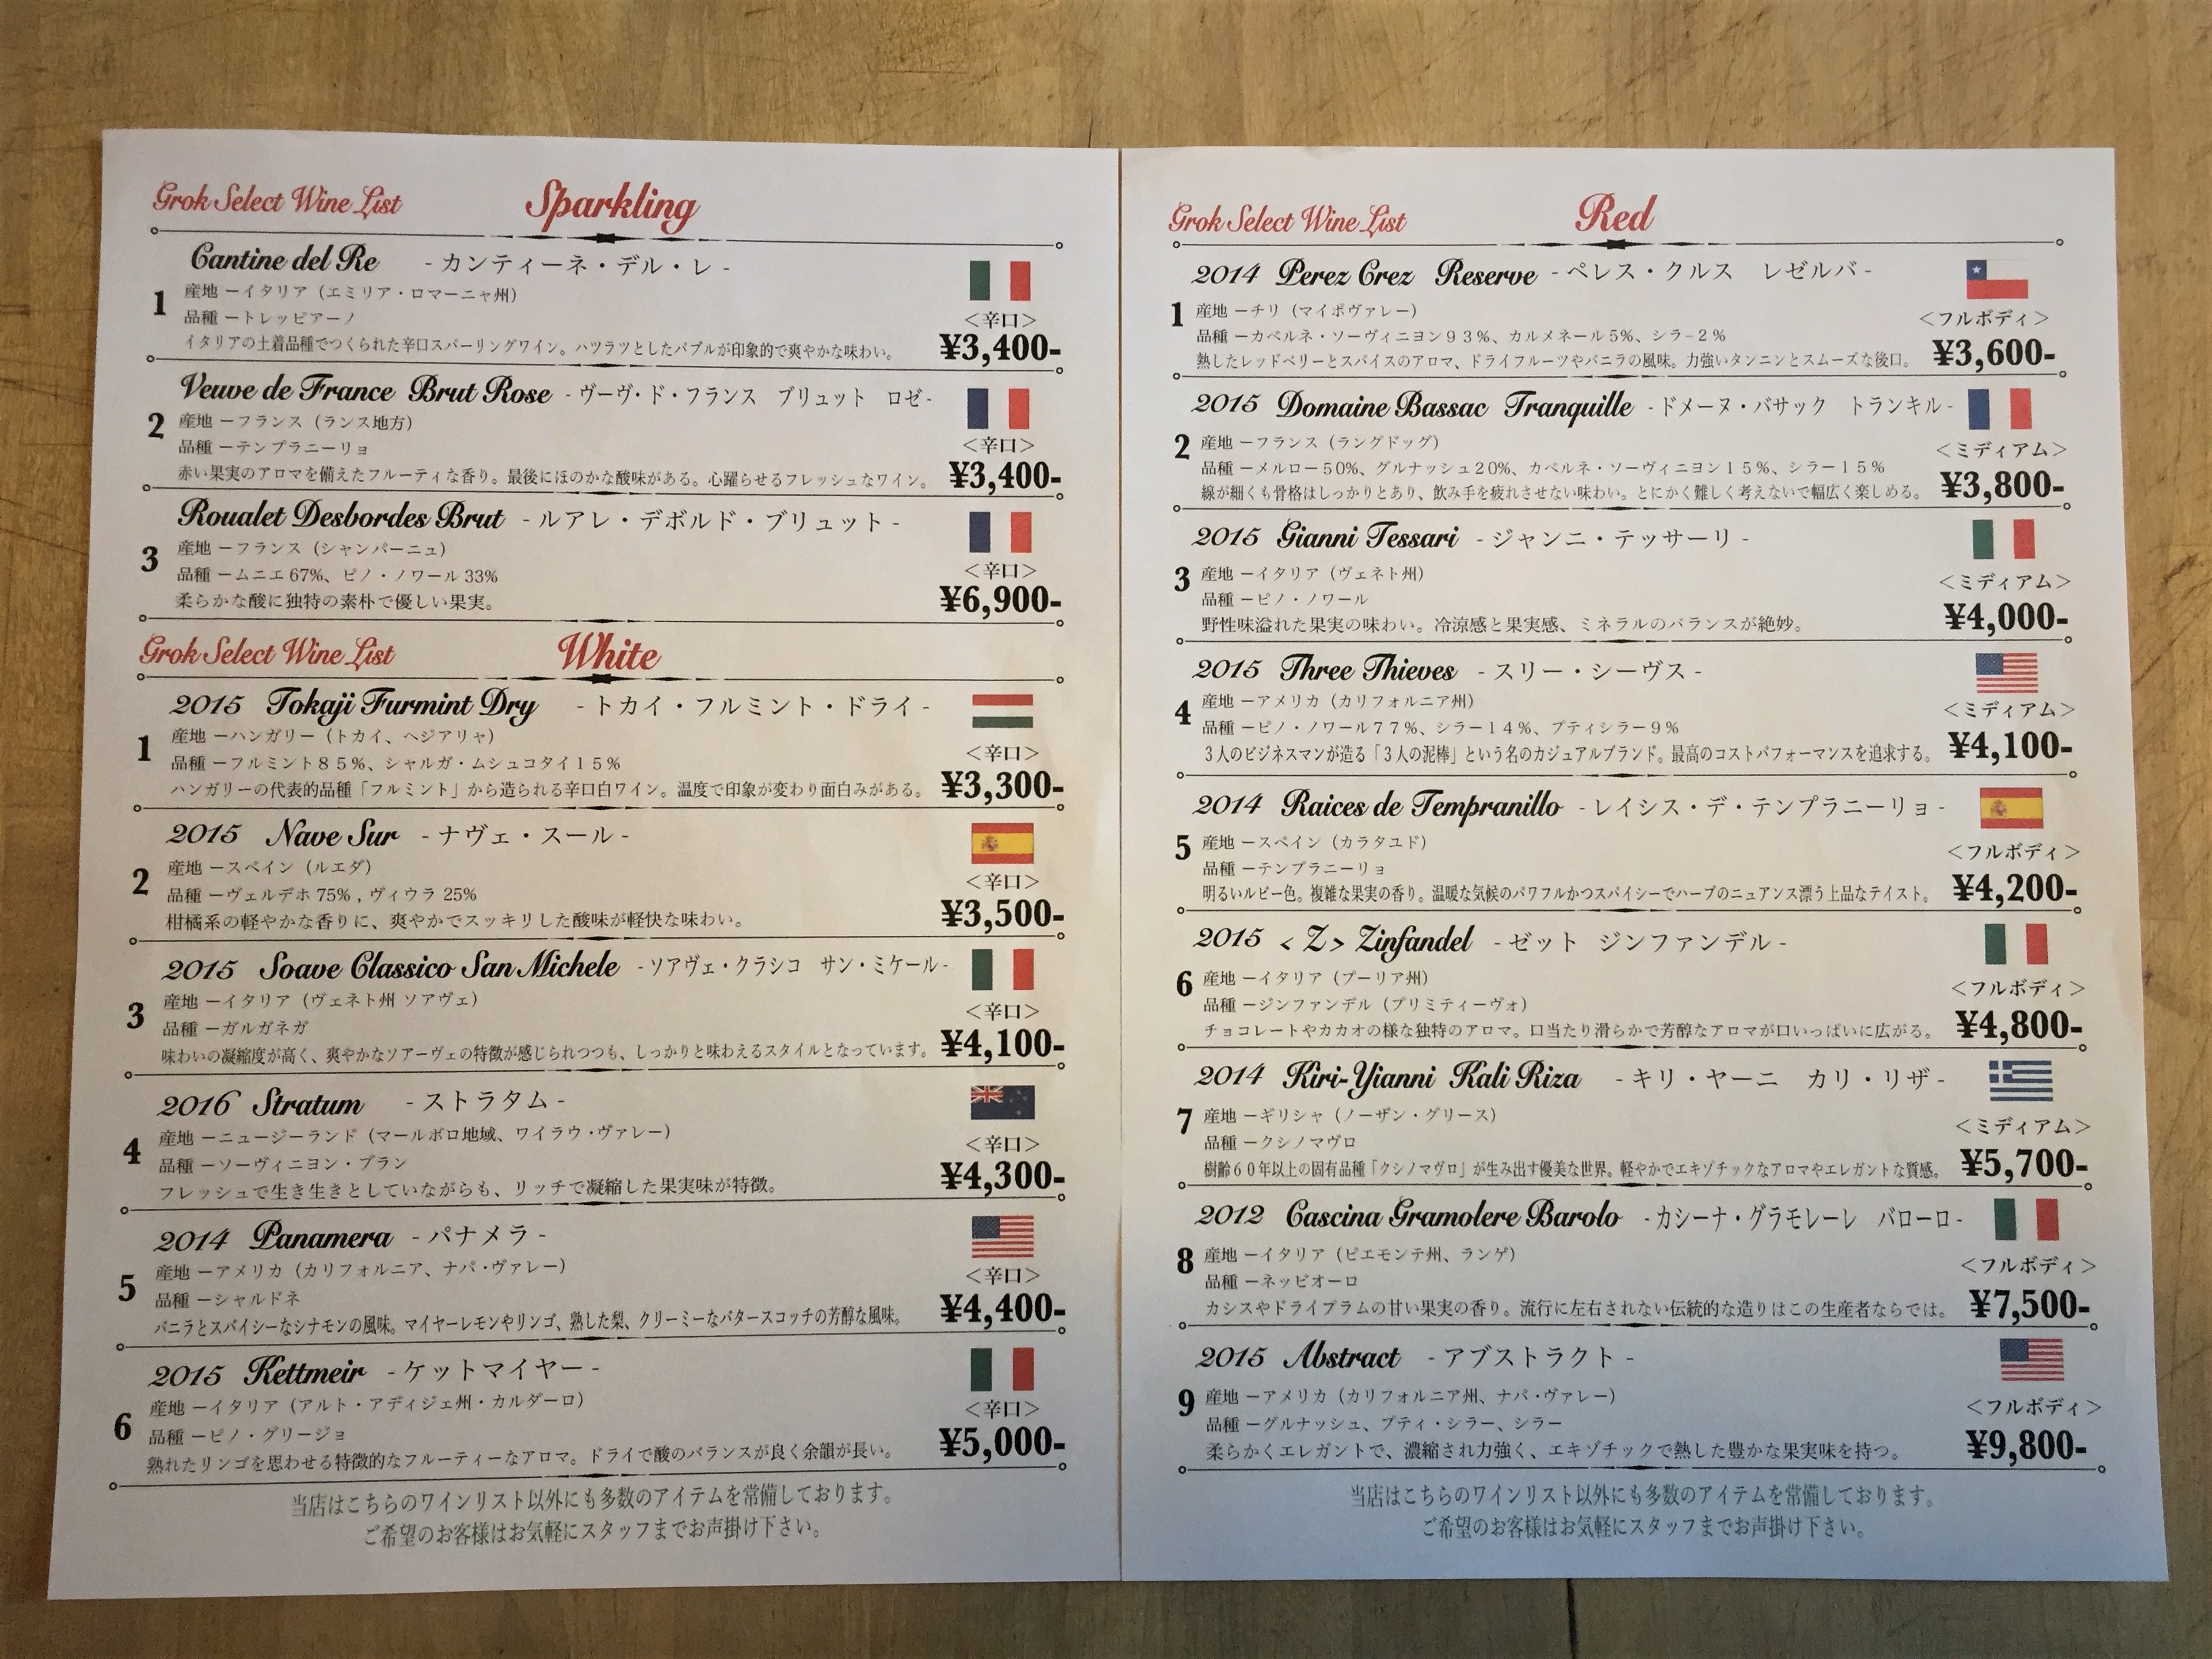 Grok Select Wine List Sparkling
Cantine del Re -カンティーネ・デル・レ-
1
産地 ーイタリア（エミリア・ロマーニャ州）
品種 ートレッビアーノ
イタリアの土着品種でつくられた辛口スパーリングワイン。ハツラツとしたバブルが印象的で爽やかな味わい。
＜辛口＞
¥3,400-
Veuve de France Brut Rose -ヴーヴ・ド・フランス ブリュット ロゼ-
2
産地 ーフランス（ランス地方）
品種 ーテンプラニーリョ
赤い果実のアロマを備えたフルーティな香り。最後にほのかな酸味がある。心躍らせるフレッシュなワイン。
＜辛口＞
¥3,400-
Roualet Desbordes Brut -ルアレ・デボルド・ブリュット-
3
産地 ーフランス（シャンパーニュ）
品種 ームニエ 67%、ピノ・ノワール 33%
柔らかな酸に独特の素朴で優しい果実。
＜辛口＞
¥6,900-
Grok Select Wine List White
2015 Tokaji Furmint Dry -トカイ・フルミント・ドライ-
1
産地 ーハンガリー（トカイ、ヘジアリャ）
品種 ーフルミント８５%、シャルガ・ムシュコタイ１５%
ハンガリーの代表的品種「フルミント」から造られる辛口白ワイン。温度で印象が変わり面白みがある。
＜辛口＞
¥3,300-
2015 Nave Sur -ナヴェ・スール-
2
産地 ースペイン（ルエダ）
品種 ーヴェルデホ 75% , ヴィウラ 25%
柑橘系の軽やかな香りに、爽やかでスッキリした酸味が軽快な味わい。
＜辛口＞
¥3,500-
2015 Soave Classico San Michele -ソアヴェ・クラシコ サン・ミケール-
3
産地 ーイタリア（ヴェネト州 ソアヴェ）
品種 ーガルガネガ
味わいの凝縮度が高く、爽やかなソアーヴェの特徴が感じられつつも、しっかりと味わえるスタイルとなっています。
＜辛口＞
¥4,100-
2016 Stratum -ストラタム-
4
産地 ーニュージーランド（マールボロ地域、ワイラウ・ヴァレー）
品種 ーソーヴィニヨン・ブラン
フレッシュで生き生きとしていながらも、リッチで凝縮した果実味が特徴。
＜辛口＞
¥4,300-
2014 Panamera -パナメラ-
5
産地 ーアメリカ（カリフォルニア、ナパ・ヴァレー）
品種 ーシャルドネ
バニラとスパイシーなシナモンの風味。マイヤーレモンやリンゴ、熟した梨、クリーミーなバタースコッチの芳醇な風味。
＜辛口＞
¥4,400-
2015 Kettmeir -ケットマイヤー-
6
産地 ーイタリア（アルト・アディジェ州・カルダーロ）
品種 ーピノ・グリージョ
熟れたリンゴを思わせる特徴的なフルーティーなアロマ。ドライで酸のバランスが良く余韻が長い。
＜辛口＞
¥5,000-
当店はこちらのワインリスト以外にも多数のアイテムを常備しております。
ご希望のお客様はお気軽にスタッフまでお声掛け下さい。
Grok Select Wine List Red
2014 Perez Crez Reserve -ペレス・クルス レゼルバ-
1
産地 ーチリ（マイポヴァレー）
品種 ーカベルネ・ソーヴィニヨン９３%、カルメネール５%、シラー２%
熟したレッドベリーとスパイスのアロマ、ドライフルーツやバニラの風味。力強いタンニンとスムーズな後口。
＜フルボディ＞
¥3,600-
2015 Domaine Bassac Tranquille -ドメーヌ・バサック トランキル-
2
産地 ーフランス（ラングドッグ）
品種 ーメルロー５０%、グルナッシュ２０%、カベルネ・ソーヴィニヨン１５%、シラー１５%
線が細くも骨格はしっかりとあり、飲み手を疲れさせない味わい。とにかく難しく考えないで幅広く楽しめる。
＜ミディアム＞
¥3,800-
2015 Gianni Tessari -ジャンニ・テッサーリ-
3
産地 ーイタリア（ヴェネト州）
品種 ーピノ・ノワール
野性味溢れた果実の味わい。冷涼感と果実感、ミネラルのバランスが絶妙。
＜ミディアム＞
¥4,000-
2015 Three Thieves -スリー・シーヴス-
4
産地 ーアメリカ（カリフォルニア州）
品種 ーピノ・ノワール７７%、シラー１４%、プティシラー９%
３人のビジネスマンが造る「３人の泥棒」という名のカジュアルブランド。最高のコストパフォーマンスを追求する。
＜ミディアム＞
¥4,100-
2014 Raices de Tempranillo -レイシス・デ・テンプラニーリョ-
5
産地 ースペイン（カラタユド）
品種 ーテンプラニーリョ
明るいルビー色。複雑な果実の香り。温暖な気候のパワフルかつスパイシーでハーブのニュアンス漂う上品なテイスト。
＜フルボディ＞
¥4,200-
2015 <Z> Zinfandel -ゼット ジンファンデル-
6
産地 ーイタリア（プーリア州）
品種 ージンファンデル（プリミティーヴォ）
チョコレートやカカオの様な独特のアロマ。口当たり滑らかで芳醇なアロマが口いっぱいに広がる。
＜フルボディ＞
¥4,800-
2014 Kiri-Yianni Kali Riza -キリ・ヤーニ カリ・リザ-
7
産地 ーギリシャ（ノーザン・グリース）
品種 ークシノマヴロ
樹齢６０年以上の固有品種「クシノマヴロ」が生み出す優美な世界。軽やかでエキゾチックなアロマやエレガントな質感。
＜ミディアム＞
¥5,700-
2012 Cascina Gramolere Barolo -カシーナ・グラモレーレ バローロ-
8
産地 ーイタリア（ピエモンテ州、ランゲ）
品種 ーネッビオーロ
カシスやドライプラムの甘い果実の香り。流行に左右されない伝統的な造りはこの生産者ならでは。
＜フルボディ＞
¥7,500-
2015 Abstract -アブストラクト-
9
産地 ーアメリカ（カリフォルニア州、ナパ・ヴァレー）
品種 ーグルナッシュ、プティ・シラー、シラー
柔らかくエレガントで、濃縮され力強く、エキゾチックで熟した豊かな果実味を持つ。
＜フルボディ＞
¥9,800-
当店はこちらのワインリスト以外にも多数のアイテムを常備しております。
ご希望のお客様はお気軽にスタッフまでお声掛け下さい。